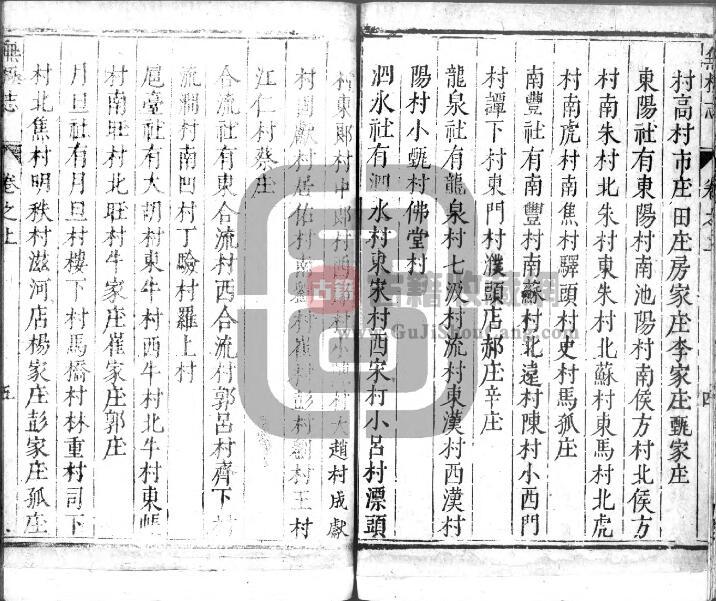 村高村市庄田庄房家庄李家庄甄家庄
東陽社有東陽村南池陽村南侯方村北侯方
村南朱村北朱村東朱村北蘇村東馬村北虎
村南虎村南焦村驛頭村史村馬狐庄
南豐社有南豐村南蘇村北遠村陳村小西門
村譚下村東門村濮頭店郝庄辛庄
龍泉社有龍泉村七汲村流村東漢村西漢村
陽村小甄村佛堂村
泗水社有泗水村東宋村西宋村小呂村漂頭
村東郎村中郎村西村小村大趙村成獻
村固歡村居佑村南村崔村彭村村王村
江仁村蔡庄
合流社有東合流村西合流村郭呂村齊下村
流澗村南凹村丁驗村羅上村
扈臺社有大胡村東牛村西牛村北牛村東
村南旺村北旺村牛家庄崔家庄郭庄
月旦社有月旦村樓下村馬橋村林重村司下
村北焦村明秩村滋河店楊家庄彭家庄狐庄
無極志
卷之上
五
四
古籍
www.GuJiShouCang.com